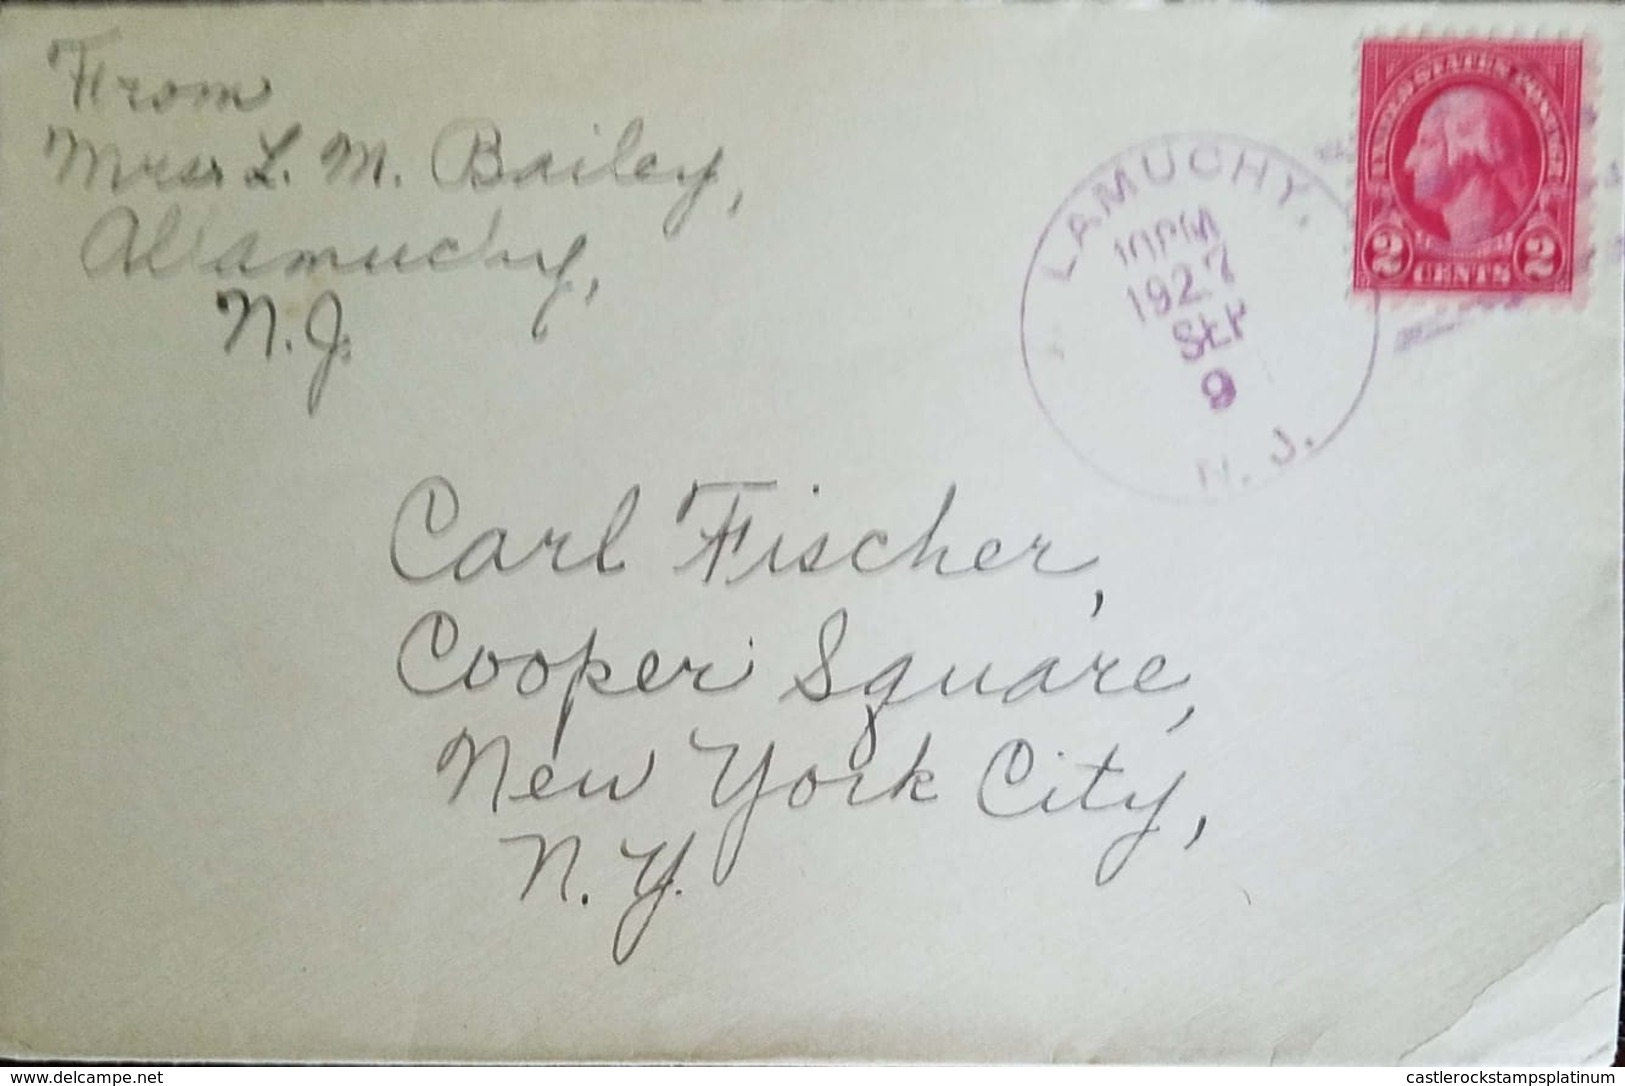 From
Mrs. L. M. Bailey,
Allamuchy,
N.J.
LAMUCHY.
1927
SEP
9
N. J.
UNITED STATES POSTAGE
2 CENTS 2
Carl Fischer,
Cooper Square,
New York City,
N.Y.
www.delcampe.net
castlerockstampsplatinum